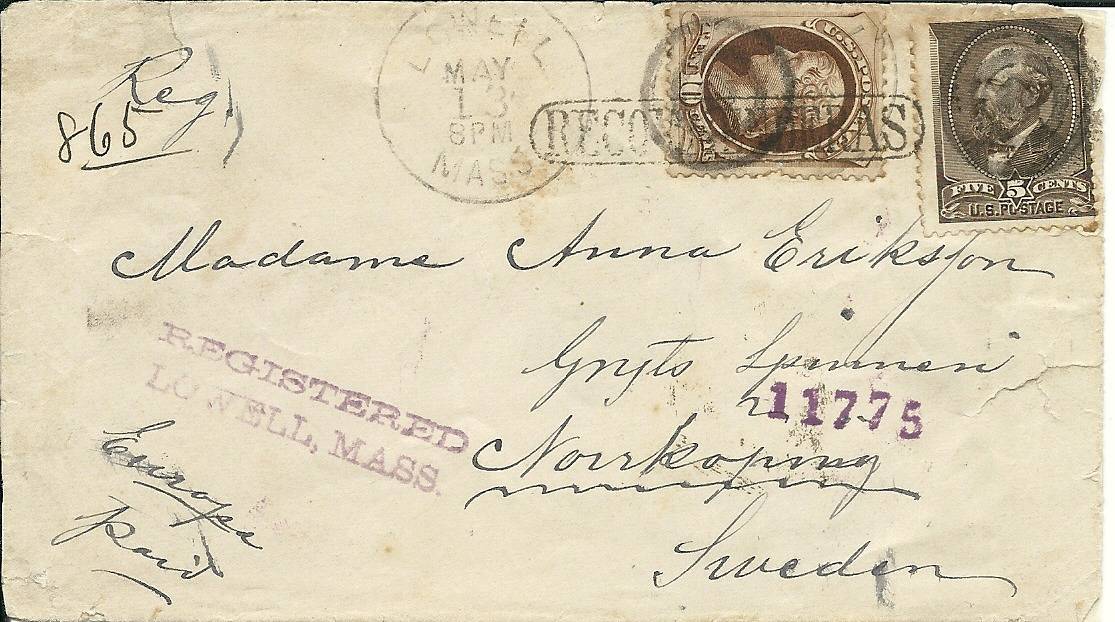 Reg
865
LOWELL
MAY
13
8PM
MASS
U.S. POSTAGE
FIVE 5 CENTS
U.S. POSTAGE
Madame Anna Eriksson
Gryts Spinneri
REGISTERED
LOWELL, MASS.
11775
Norrkoping
Europa
paid
Sweden